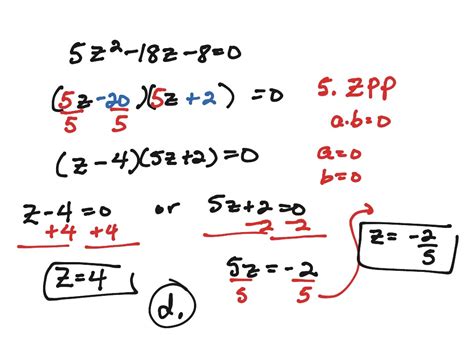 5z²-18z-8=0
(5z-20)(5z+2) =0
5 5
5. ZPP
a.b=0
a=0
b=0
(z-4)(5z+2)=0
z-4=0 or 5z+2=0
+4 +4 -2 -2
z=4
d.
5z=-2
5 5
z= -2
5